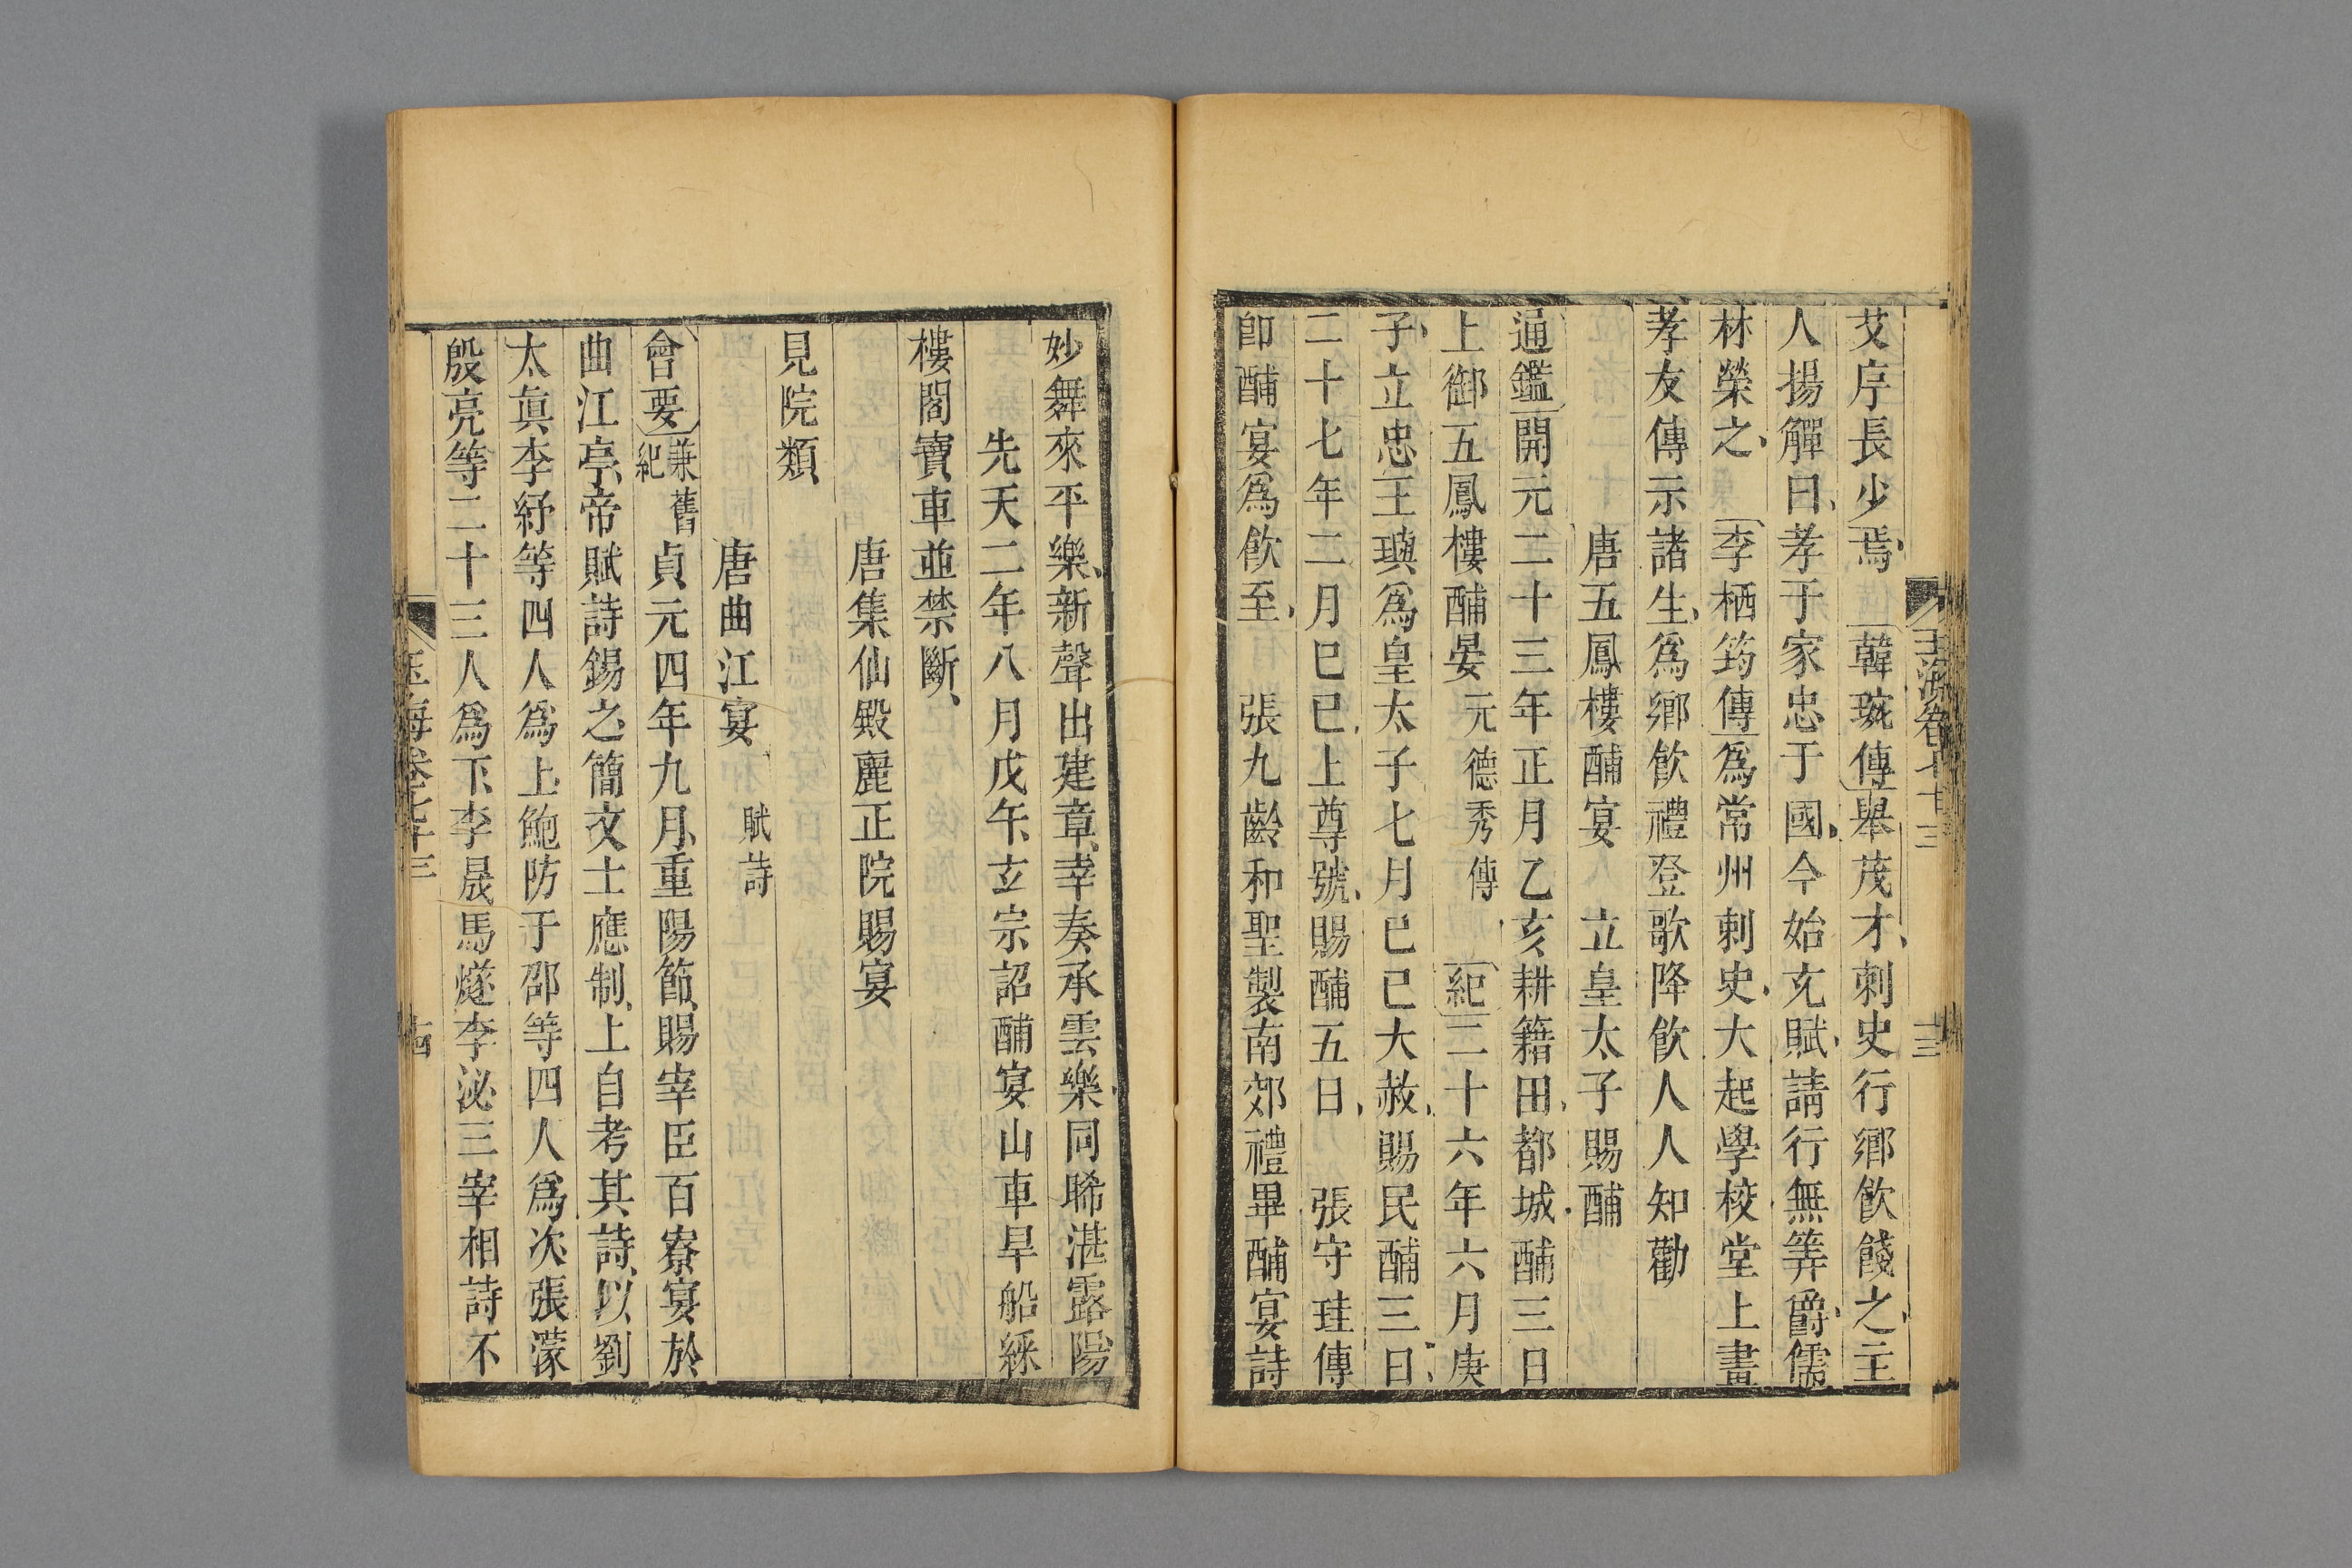 玉海卷七十三
十三
艾序長少焉韓琬傳舉茂才刺史行鄉飲餞之主
人揚觶曰孝于家忠于國今始充賦請行無筭爵儒
林榮之李栖筠傳爲常州刺史大起學校堂上畫
孝友傳示諸生爲鄉飲禮登歌降飲人人知勸
唐五鳳樓酺宴 立皇太子賜酺
通鑑開元二十三年正月乙亥耕籍田都城酺三日
上御五鳳樓酺晏元德秀傳紀二十六年六月庚
子立忠王璵爲皇太子七月己巳大赦賜民酺三日
二十七年二月己巳上尊號賜酺五日 張守珪傳
卽酺宴爲飲至 張九齡和聖製南郊禮畢酺宴詩
妙舞來平樂新聲出建章幸奏承雲樂同晞湛露陽
先天二年八月戊午玄宗詔酺宴山車旱船綵
樓閣寶車並禁斷
唐集仙殿麗正院賜宴
見院類
唐曲江宴 賦詩
會要兼舊紀貞元四年九月重陽節賜宰臣百寮宴於
曲江亭帝賦詩錫之簡文士應制上自考其詩以劉
太眞李紓等四人爲上鮑防于邵等四人爲次張濛
殷亮等二十三人爲下李晟馬燧李泌三宰相詩不
玉海卷七十三
十四